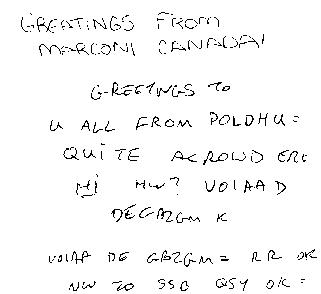 GREATINGS FROM
MARCONI CANADA!
GREETINGS TO
U ALL FROM POLDHU =
QUITE A CROWD ERE
HI HW? VO1AA D
DE GB2GM K
VO1AA DE GB2GM = RR OK
NW TO SSB QSY OK =